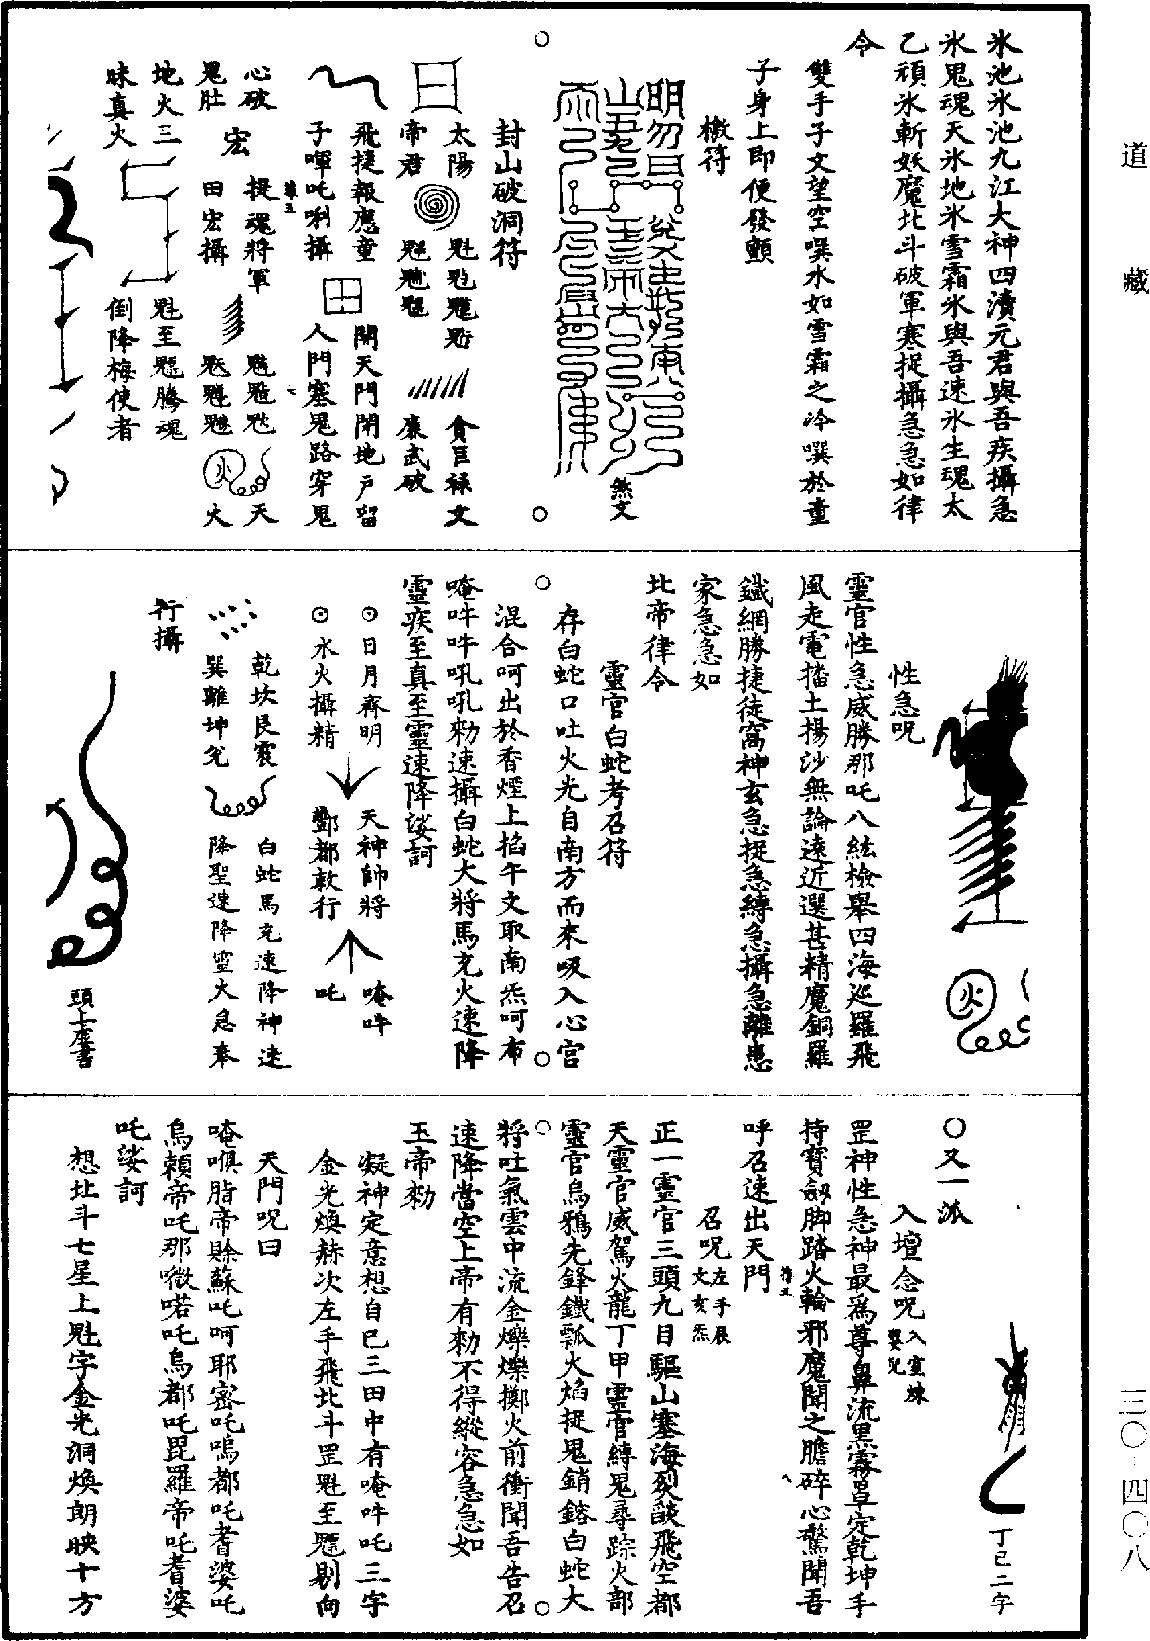 道藏
氷池氷池九江大神四瀆元君與吾疾攝急
氷鬼魂天氷地氷雪霜氷與吾速氷生魂太
乙頑氷斬妖魔北斗破軍寒捉攝急急如律
令
雙手子文望空噀水如雪霜之冷噀於童
子身上即便發顫
檄符
煞文
封山破洞符
太陽
帝君
魁𩲃
貪巨祿文
廉武破
飛捷報應童
子啤吒唎攝
開天門閉地戶留
人門塞鬼路穿鬼
心破
鬼肚
宏
捉魂將軍
田宏攝
火
天
火
地火三
昧真火
魁至魒騰魂
倒降梅使者
火
性急呪
靈官性急威勝那吒八紘檢舉四海廵羅飛
風走電播土揚沙無論遠近選甚精魔銅羅
鐵網勝捷徒窩神玄急捉急縛急攝急離患
家急急如
北帝律令
靈官白蛇考召符
存白蛇口吐火光自南方而來吸入心宮
混合呵出於香煙上掐午文取南炁呵布
唵吽吽吼吼勑速攝白蛇大將馬充火速降
靈疾至真至靈速降娑訶
日月齊明
水火攝精
天神帥將
酆都敕行
唵吽
吒
乾坎艮震
巽離坤兌
白蛇馬充速降神速
降聖速降靈火急奉
行攝
頭上度書
丁巳二字
○又一派
入壇念呪入室煉嬰兒
罡神性急神最爲尊鼻流黑霧罩定乾坤手
持寶劔脚踏火輪邪魔聞之膽碎心驚聞吾
呼召速出天門
召呪左手展文亥炁
正一靈官三頭九目驅山塞海烈燄飛空都
天靈官威駕火龍丁甲靈官縛鬼尋踪火部
靈官烏鴉先鋒鐵瓢火焰捉鬼銷鎔白蛇大
將吐氣雲中流金爍爍擲火前衝聞吾告召
速降當空上帝有勑不得縱容急急如
玉帝勑
凝神定意想自己三田中有唵吽吒三字
金光煥赫次左手飛北斗罡魁至魒剔向
天門呪曰
唵嗔脂帝賒蘇吒呵耶密吒嗚都吒耆婆吒
烏賴帝吒那微喏吒烏都吒毘羅帝吒耆婆
吒娑訶
想北斗七星上魁字金光洞煥朗映十方
三〇-四〇八